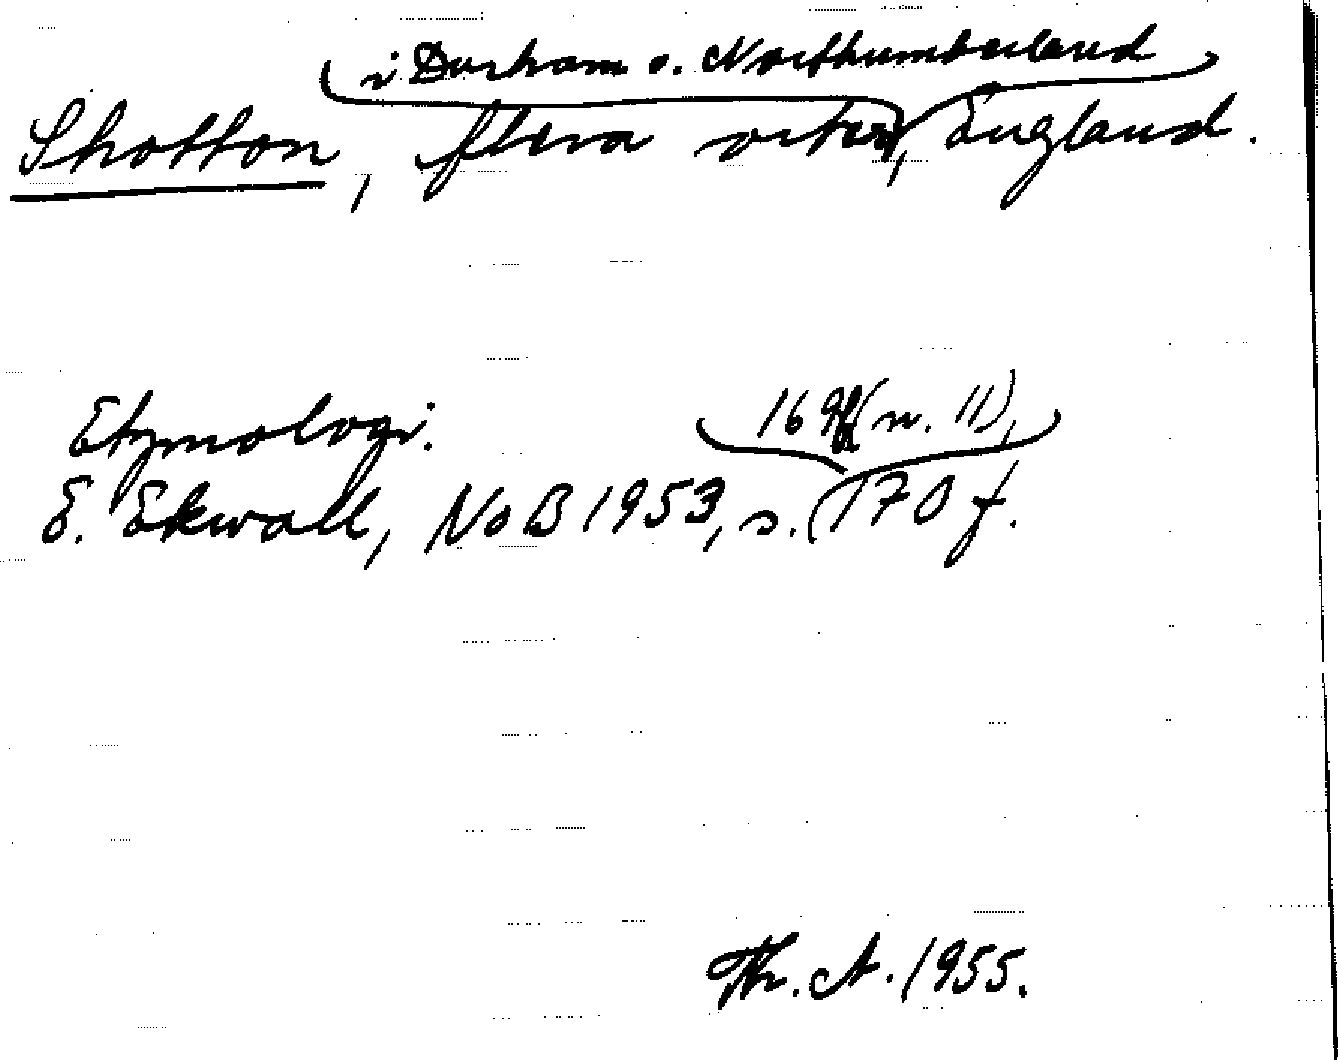 i Durham o. Northumberland
Shotton, flera orter, England.
Etymologi:
169 ff (n. 11),
E. Ekwall, NoB 1953, s. (170 f.
Th. A. 1955.